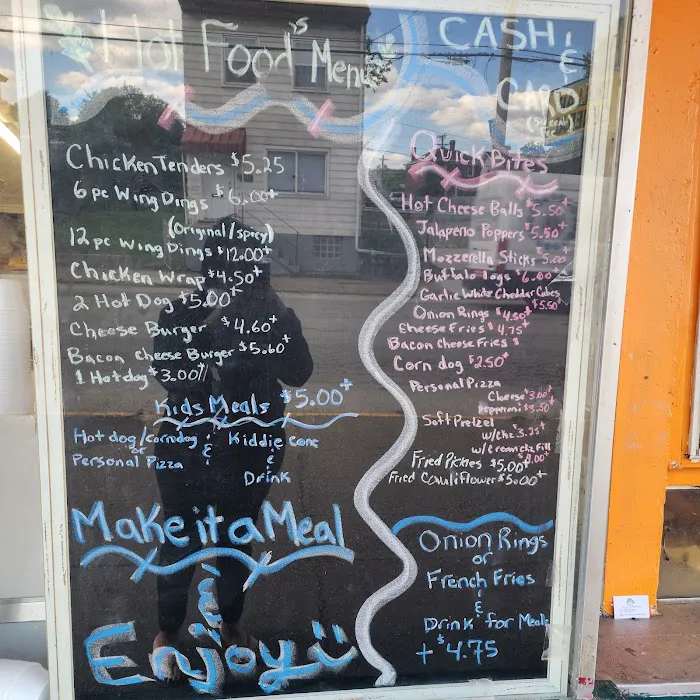 Hot Food's Menu
Chicken Tenders $5.25
6 pc Wing Dings $6.00+
(Original/spicy)
12 pc Wing Dings $12.00+
Chicken Wrap $4.50+
2 Hot Dog $5.00+
Cheese Burger $4.60+
Bacon Cheese Burger $5.60+
1 Hotdog $3.00
Kids Meals $5.00+
Hot dog/corndog
or
Personal Pizza
&
Kiddie cone
&
Drink
Make it a Meal
&
Enjoy
CASH
&
CARD
Quick Bites
Hot Cheese Balls $5.50+
Jalapeno Poppers $5.50+
Mozzerella Sticks 5.00+
Buffalo Logs $6.00+
Garlic White Cheddar Cubes
$5.50+
Onion Rings $4.50+
Cheese Fries $4.75+
Bacon Cheese Fries $
Corn dog $2.50+
Personal Pizza
Cheese $3.00+
Pepperoni $3.50+
Soft Pretzel
w/chz 3.25+
w/creamchz Fill
$4.00+
Fried Pickles $5.00+
Fried Cauliflower $5.00+
Onion Rings
or
French Fries
&
Drink for Meals
+ $4.75